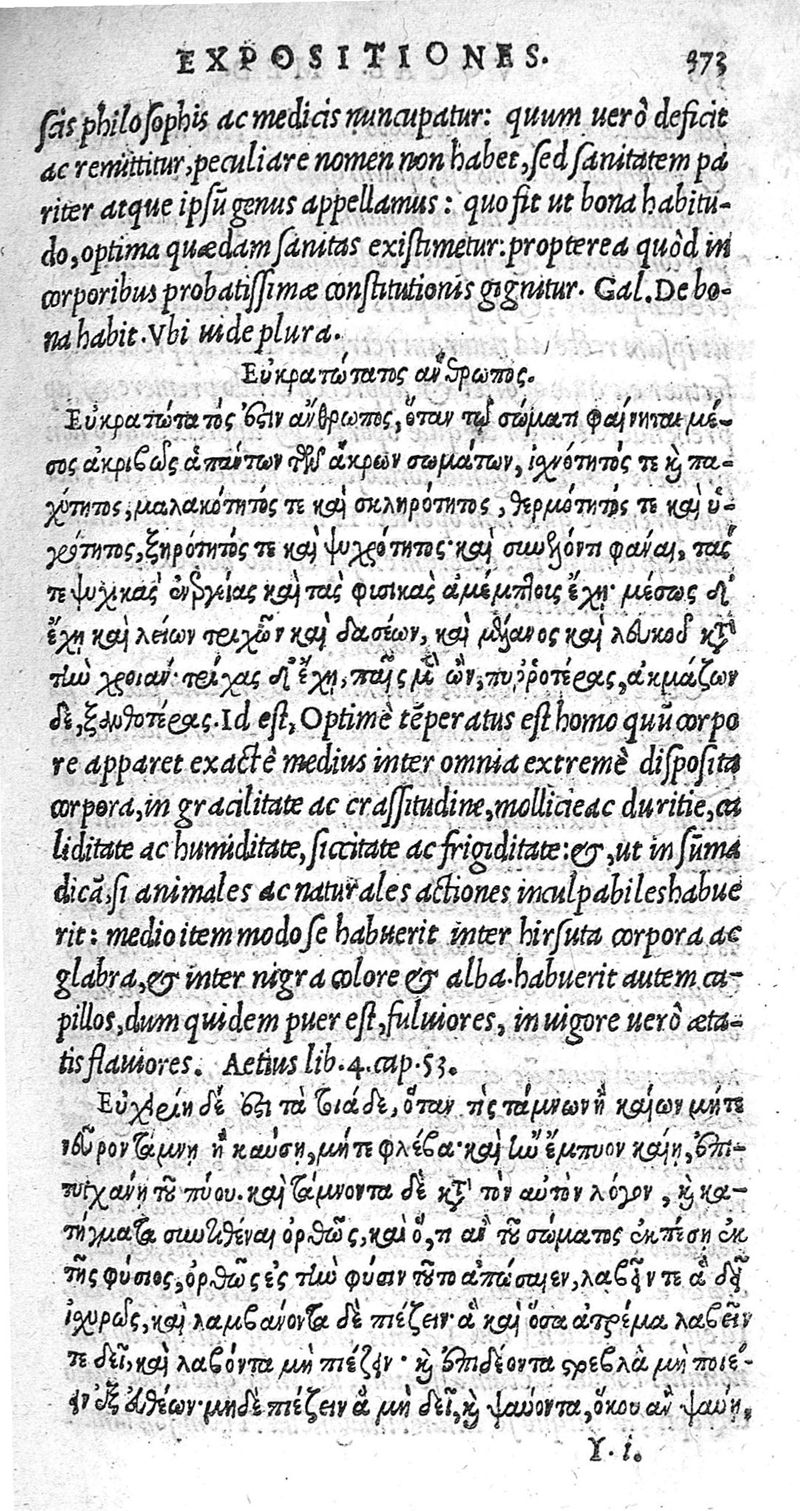 EXPOSITIONES. 373
scis philosophis ac medicis nuncupatur: quum uerò deficit
ac remittitur, peculiare nomen non habet, sed sanitatem pa
riter atque ipsũ genus appellamus: quo fit ut bona habitu-
do, optima quædam sanitas existimetur: propterea quòd in
corporibus probatissimæ constitutionis gignitur. Gal. De bo-
na habit. Vbi uide plura.
Εὐκρατώτατος ἄνθρωπος.
Εὐκρατώτατός ἐστιν ἄνθρωπος, ὅταν τῷ σώματι φαίνηται μέ-
σος ἀκριβῶς ἁπάντων τῶν ἄκρων σωμάτων, ἰχνότητός τε καὶ πα-
χύτητος, μαλακότητός τε καὶ σκληρότητος, θερμότητός τε καὶ ὑ-
γρότητος, ξηρότητός τε καὶ ψυχρότητος· καὶ συνελόντι φάναι, τάς
τε ψυχικὰς ἐνεργείας καὶ τὰς φυσικὰς ἀμέμπτοις ἔχῃ· μέσως δ'
ἔχῃ καὶ λείων τριχῶν καὶ δασέων, καὶ μέλανος καὶ λευκοῦ κατὰ
τὴν χροιαν· τρίχας δ' ἔχῃ, παῖς μὲν ὢν, πυῤῥοτέρας, ἀκμάζων
δὲ, ξανθοτέρας. Id est, Optimè tẽperatus est homo quũ corpo
re apparet exactè medius inter omnia extremè disposita
corpora, in gracilitate ac crassitudine, mollicie ac duritie, ca
liditate ac humiditate, siccitate ac frigiditate: &, ut in sũma
dicã, si animales ac naturales actiones inculpabiles habue
rit: medio item modo se habuerit inter hirsuta corpora ac
glabra, & inter nigra colore & alba. habuerit autem ca-
pillos, dum quidem puer est, fuluiores, in uigore uerò æta-
tis flauiores. Aetius lib. 4. cap. 53.
Εὐχερίη δέ ἐστι τὰ τοιάδε, ὅταν τις τάμνων ἢ καίων μήτε
νεῦρον τάμνῃ ἢ καύσῃ, μήτε φλέβα· καὶ ἢν ἔμπυον καίῃ, ἐπι-
τυγχάνῃ τοῦ πύου. καὶ τάμνοντα δὲ κατὰ τὸν αὐτὸν λόγον, καὶ κα-
τήγματα συντιθέναι ὀρθῶς, καὶ ὅ, τι ἂν τοῦ σώματος ἐκπέσῃ ἐκ
τῆς φύσιος, ὀρθῶς ἐς τὴν φύσιν τοῦτο ἀπώσαιεν, λαβεῖν τε ἃ δεῖ
ἰχυρῶς, καὶ λαμβάνοντα δὲ πιέζειν· ἃ καὶ ὅσα ἀτρέμα λαβεῖν
τε δεῖ, καὶ λαβόντα μὴ πιέζειν· καὶ ἐπιδέοντα στρεβλὰ μὴ ποιέ-
ειν ἐξ εὐθέων· μηδὲ πιέζειν ἃ μὴ δεῖ, καὶ ψαύοντα, ὅκου ἂν ψαύῃ,
Y. i.